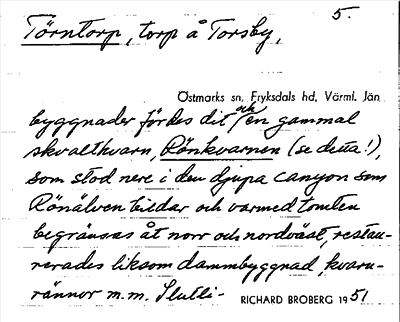 5.
Törntorp, torp å Torsby,
Östmarks sn, Fryksdals hd, Värml. län
byggnader fördes dit och en gammal
skvaltkvarn, Rönkvarnen (se detta!),
som stod nere i den djupa canyon som
Rönälven bildar och varmed tomten
begränsas åt norr och nordväst, restau-
rerades liksom dammbyggnad, kvarn-
rännor m.m. Slutli-
RICHARD BROBERG 1951